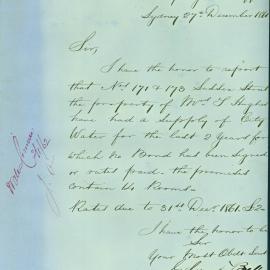 Sydney 27th December 1861
Sir,
I have the honor to report
that Nos 171 & 173 Sussex Street
the property of Mrs T Hughes
have had a supply of City
Water for the last 2 Years for
which no Bond has been signed
or rates paid. the premises
contain 14 Rooms.
Rates due to 31st Decr 1861 £2
I have the honor to be
Sir
Your Most Obedt Servt
Water